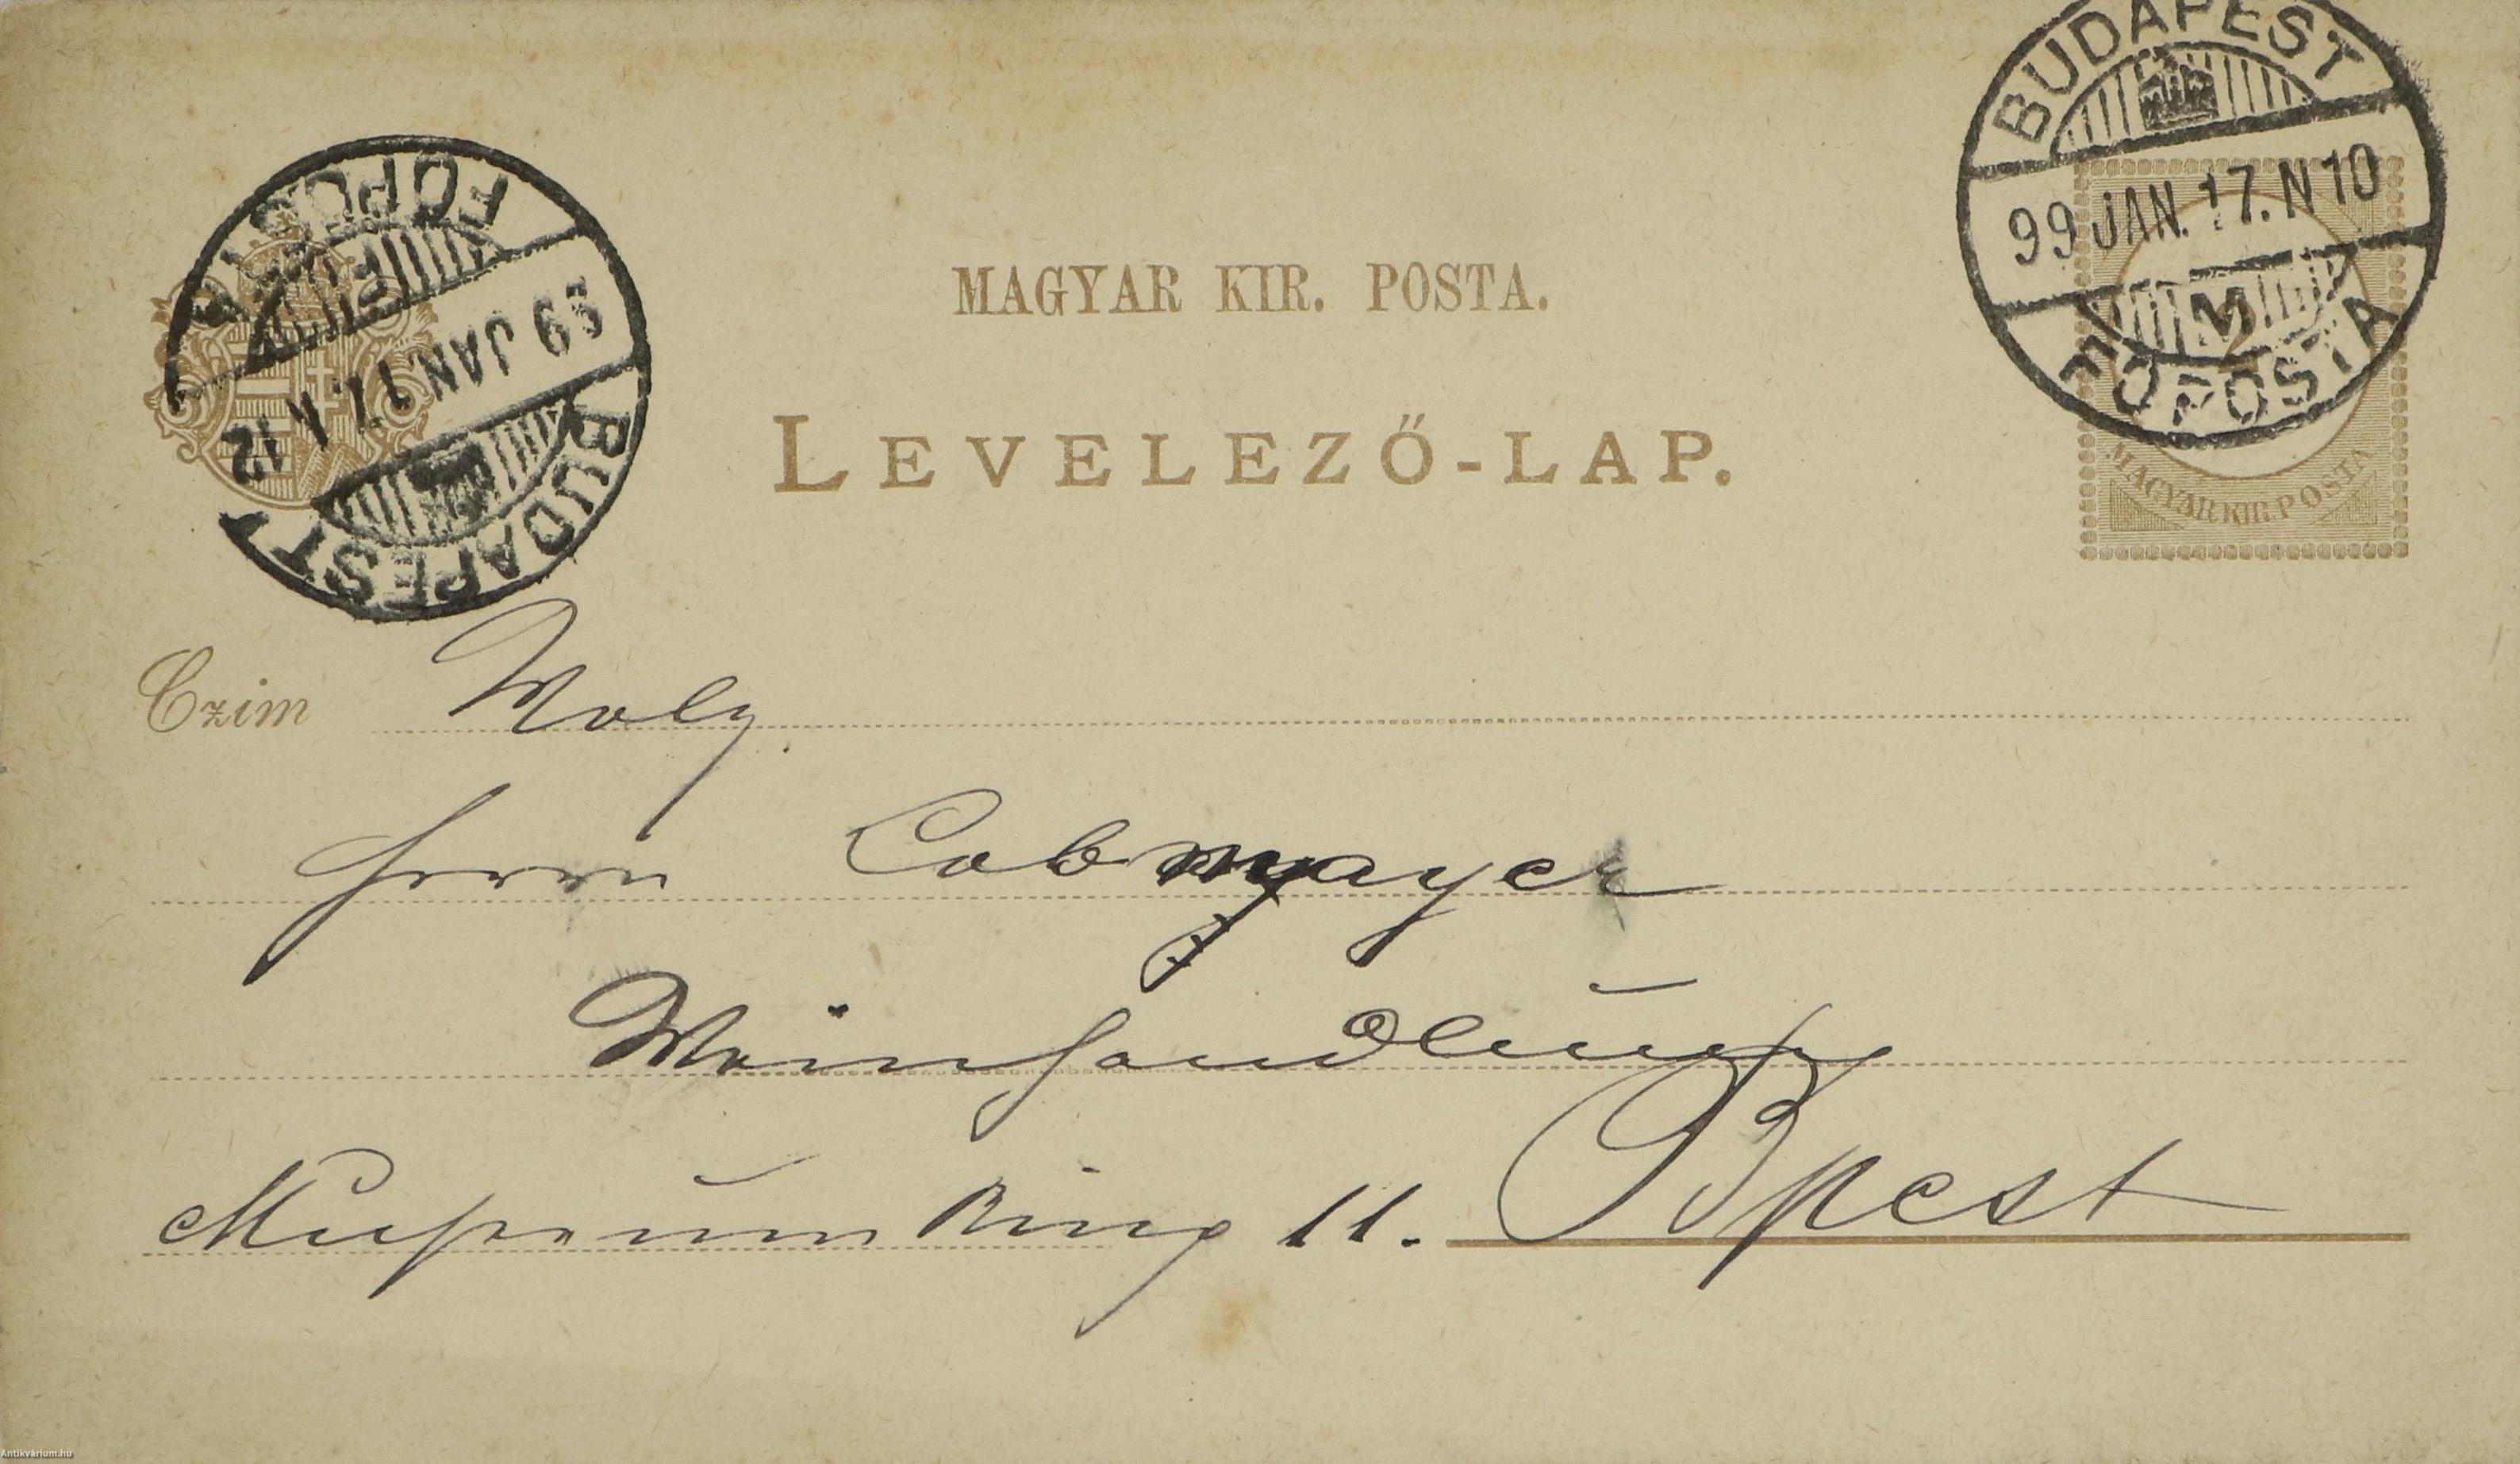 BUDAPEST
99 JAN. 17. N 10
M 2
FŐPOSTA
BUDAPEST
99 JAN. 17. N 12
FŐPOSTA
MAGYAR KIR. POSTA.
LEVELEZŐ-LAP.
MAGYAR KIR. POSTA
Czim Wolg.
Herrn Lobmayer
Weinhandlung
Museum Ring 11. Bpest
Antikvárium.hu